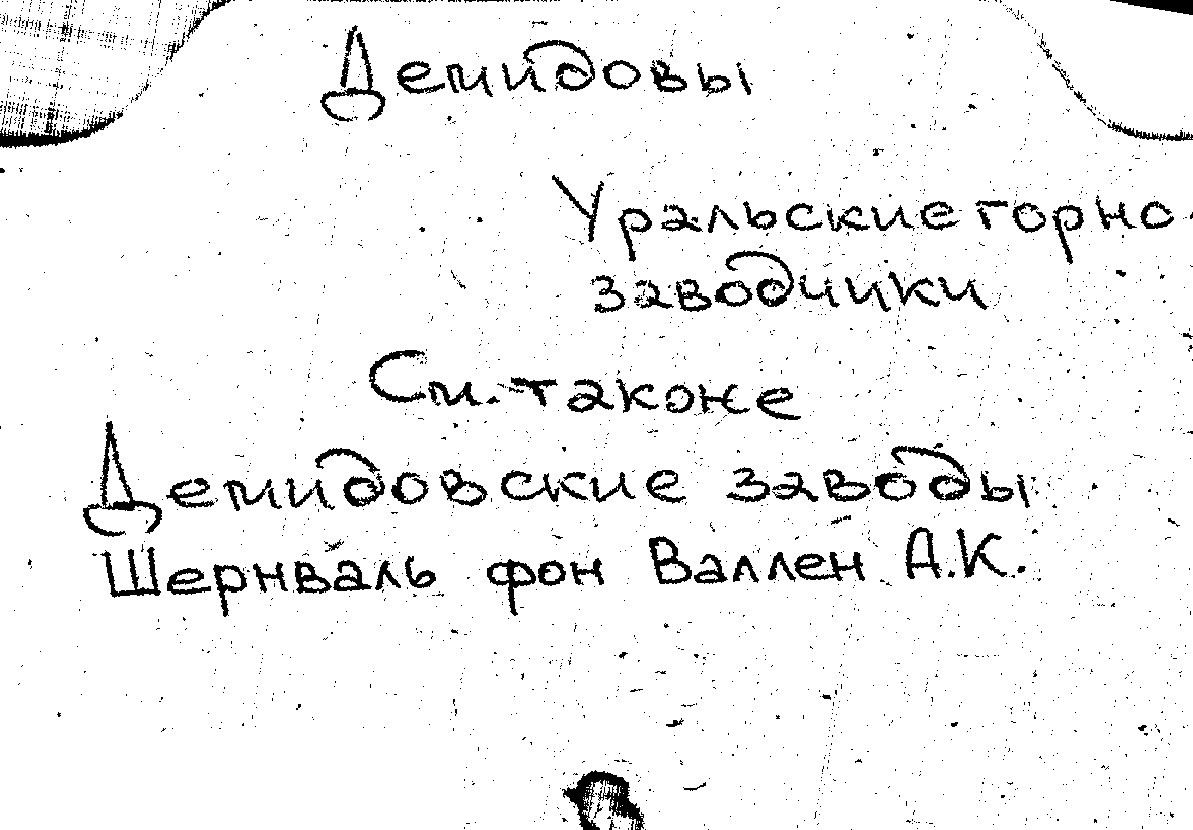 Демидовы
Уральские горно
заводчики
См. также
Демидовские заводы
Шернваль фон Валлен А.К.